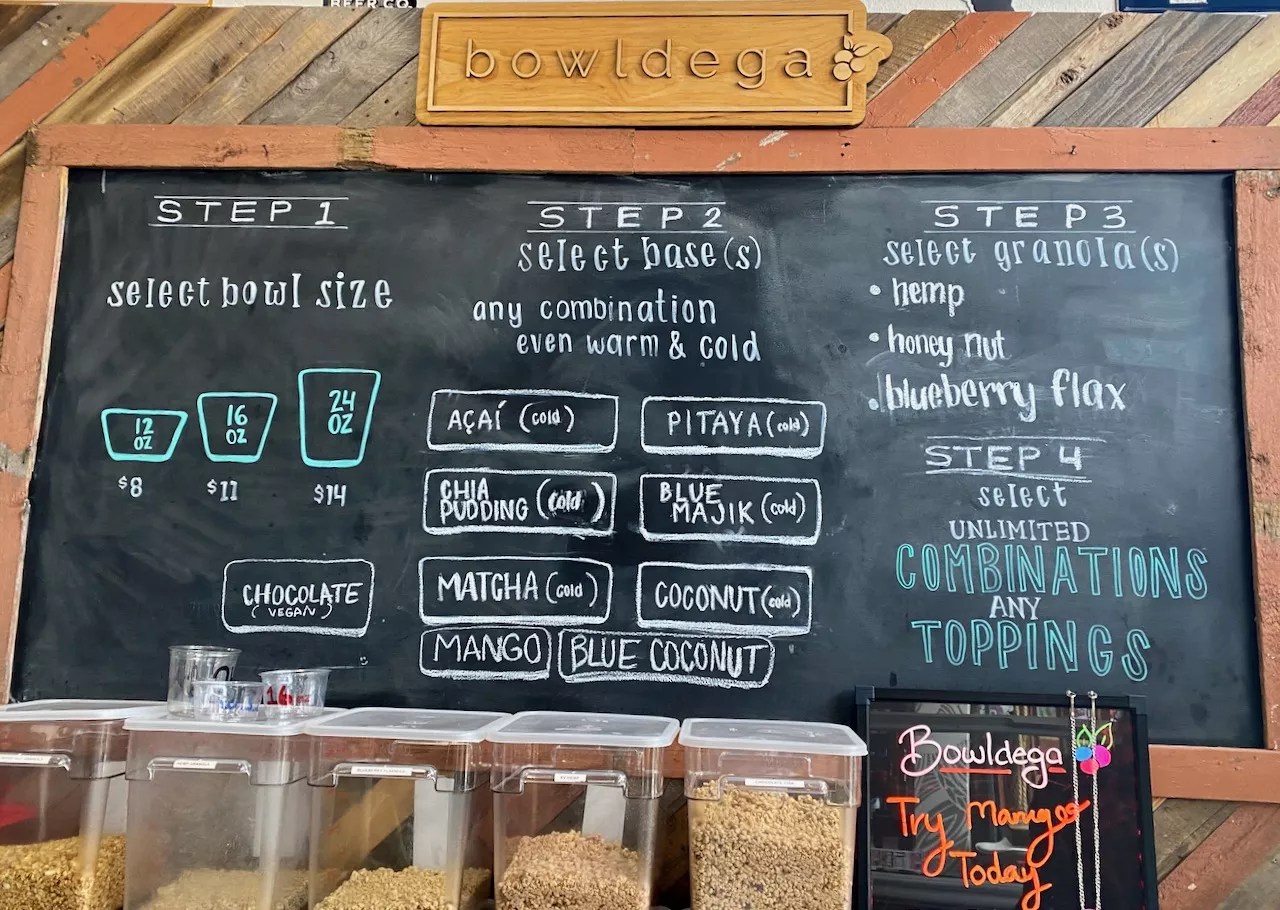 BEER CO.
bowldega
STEP 1
select bowl size
12
OZ
16
OZ
24
OZ
$8
$11
$14
CHOCOLATE
(VEGAN)
STEP 2
select base(s)
any combination
even warm & cold
AÇAÍ (cold)
PITAYA (cold)
CHIA
PUDDING (cold)
BLUE
MAJIK (cold)
MATCHA (cold)
COCONUT (cold)
MANGO
BLUE COCONUT
STEP 3
select granola(s)
• hemp
• honey nut
• blueberry flax
STEP 4
select
UNLIMITED
COMBINATIONS
ANY
TOPPINGS
Bowldega
Try Mango
Today